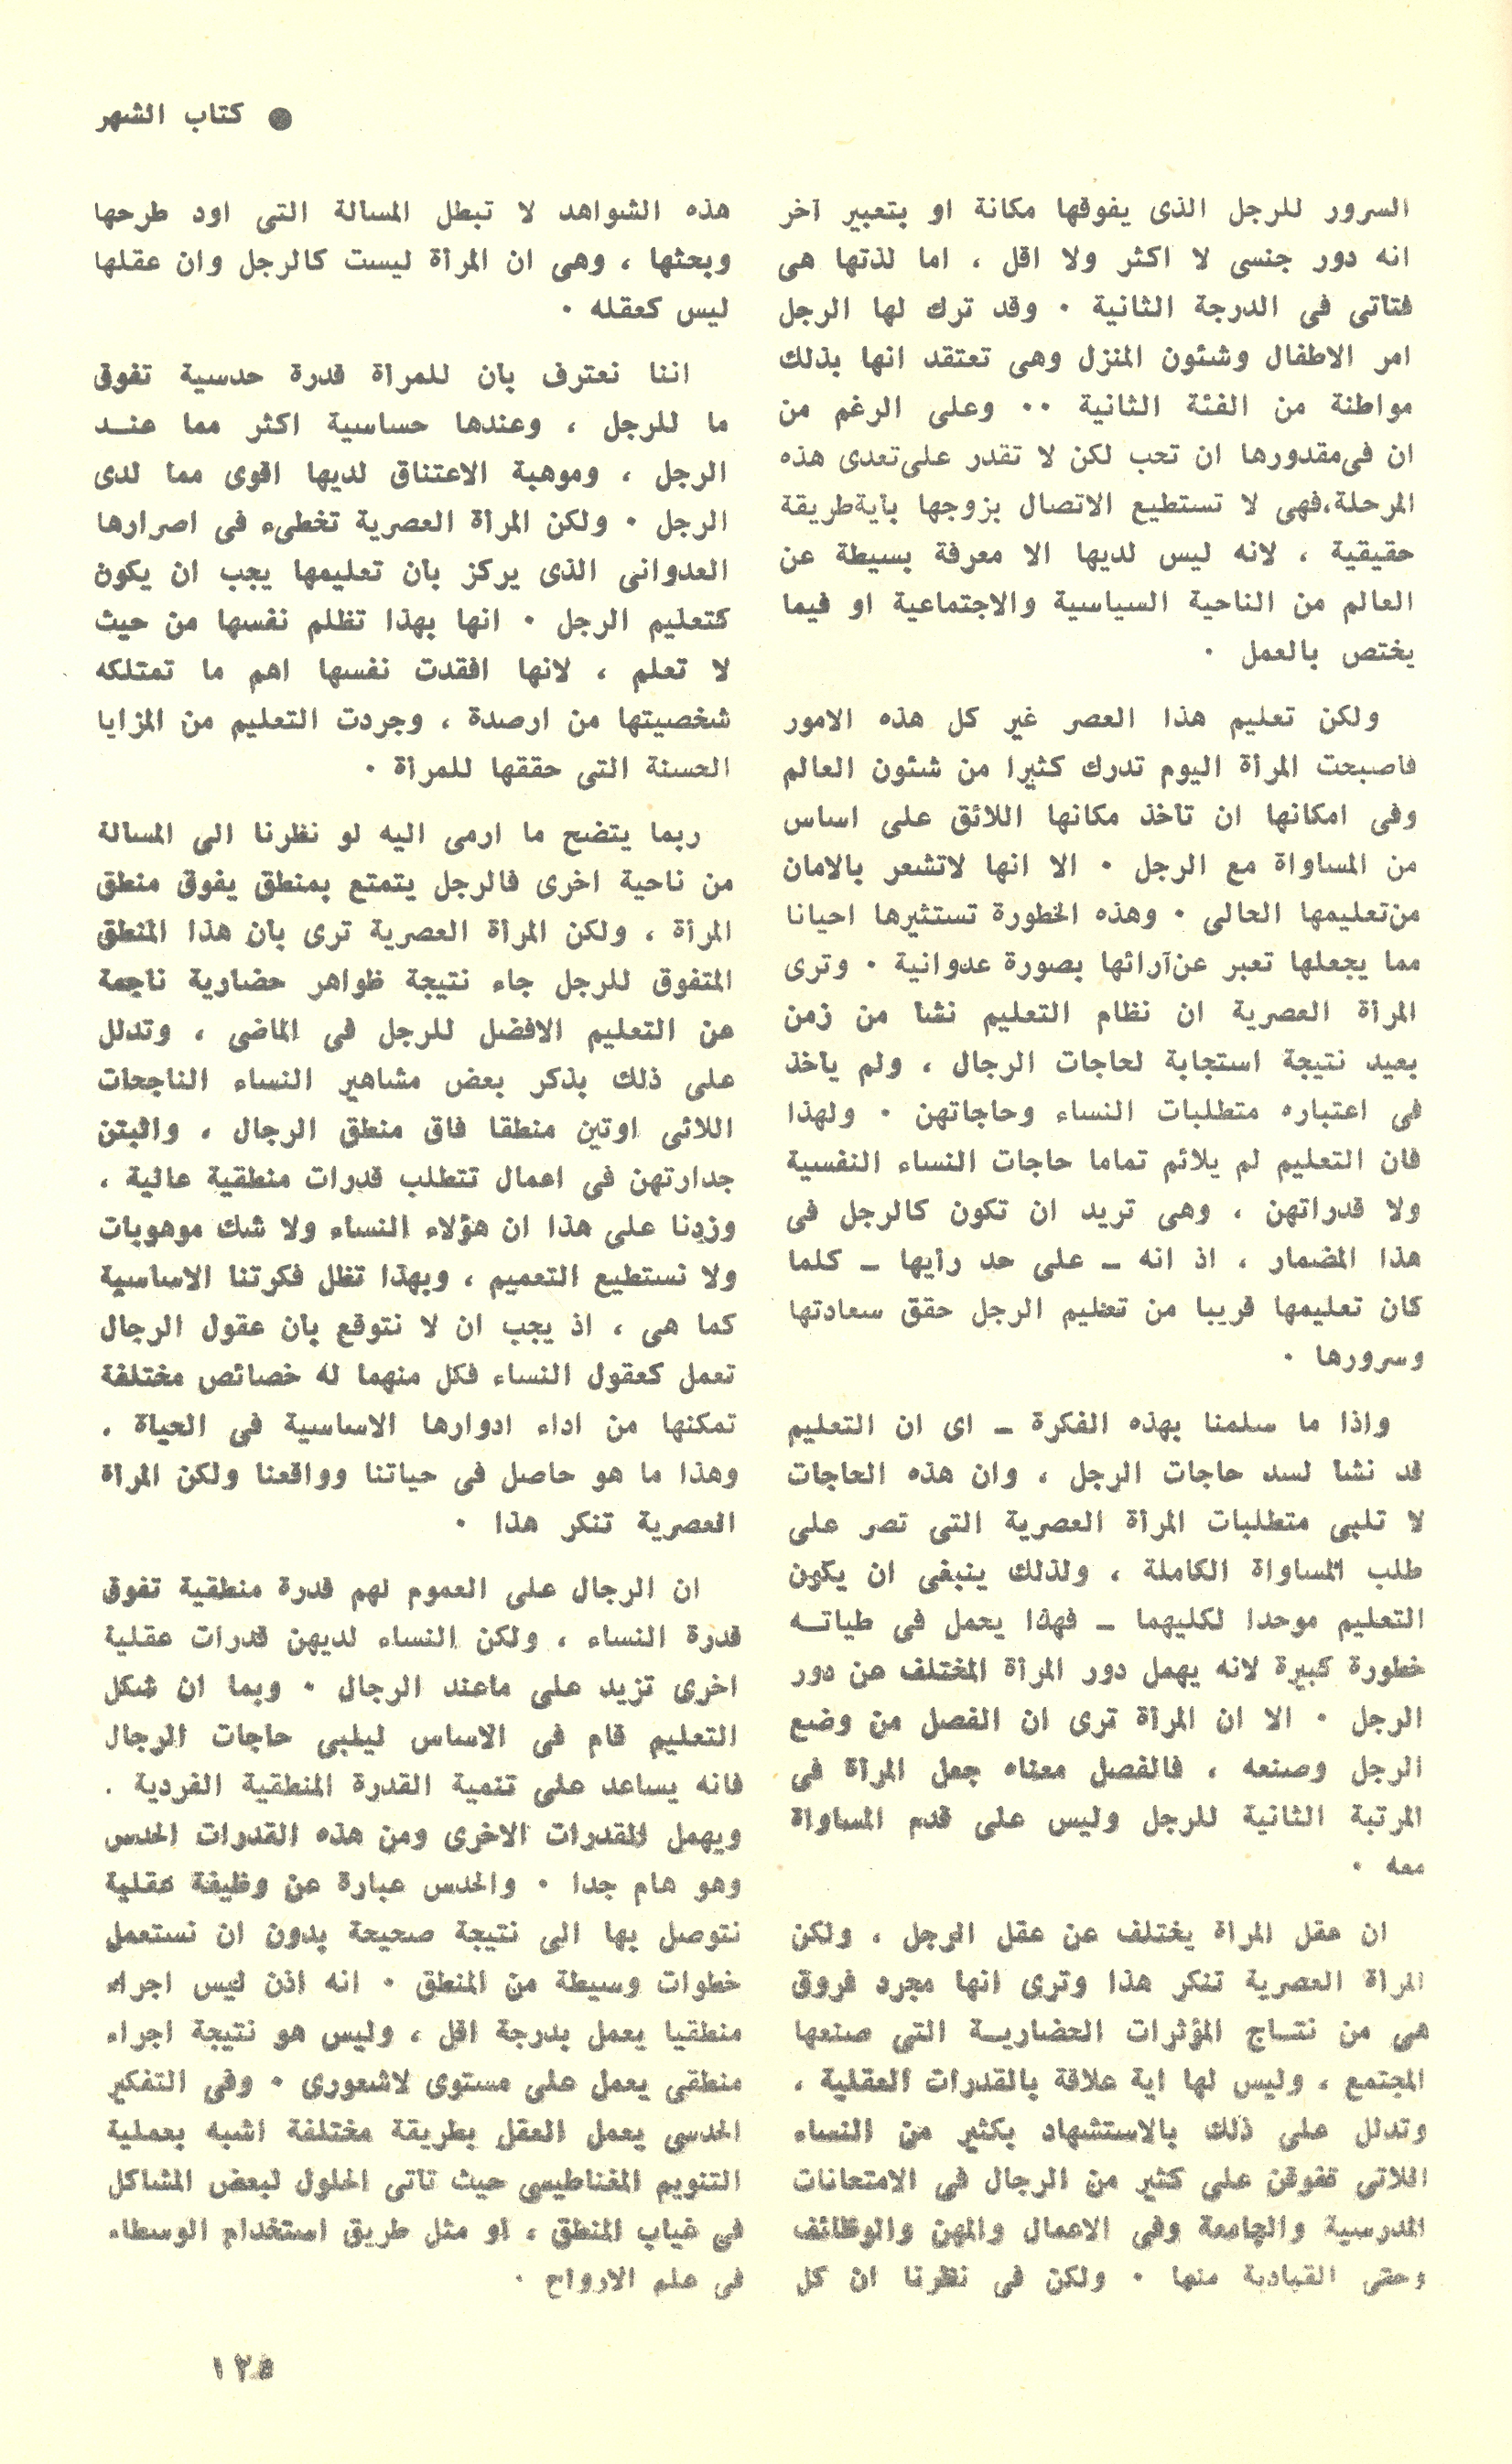 ● كتاب الشهر
السرور للرجل الذى يفوقها مكانة او بتعبير آخر
انه دور جنسى لا اكثر ولا اقل ، اما لذتها هى
فتأتى فى الدرجة الثانية · وقد ترك لها الرجل
امر الاطفال وشئون المنزل وهى تعتقد انها بذلك
مواطنة من الفئة الثانية ·· وعلى الرغم من
ان فى مقدورها ان تحب لكن لا تقدر على تعدى هذه
المرحلة،فهى لا تستطيع الاتصال بزوجها بأية طريقة
حقيقية ، لانه ليس لديها الا معرفة بسيطة عن
العالم من الناحية السياسية والاجتماعية او فيما
يختص بالعمل ·
ولكن تعليم هذا العصر غير كل هذه الامور
فاصبحت المرأة اليوم تدرك كثيرا من شئون العالم
وفى امكانها ان تأخذ مكانها اللائق على اساس
من المساواة مع الرجل · الا انها لاتشعر بالامان
من تعليمها الحالى · وهذه الخطورة تستثيرها احيانا
مما يجعلها تعبر عن آرائها بصورة عدوانية · وترى
المرأة العصرية ان نظام التعليم نشأ من زمن
بعيد نتيجة استجابة لحاجات الرجال ، ولم يأخذ
فى اعتباره متطلبات النساء وحاجاتهن · ولهذا
فان التعليم لم يلائم تماما حاجات النساء النفسية
ولا قدراتهن ، وهى تريد ان تكون كالرجل فى
هذا المضمار ، اذ انه ـ على حد رأيها ـ كلما
كان تعليمها قريبا من تعليم الرجل حقق سعادتها
وسرورها ·
واذا ما سلمنا بهذه الفكرة ـ اى ان التعليم
قد نشأ لسد حاجات الرجل ، وان هذه الحاجات
لا تلبى متطلبات المرأة العصرية التى تصر على
طلب المساواة الكاملة ، ولذلك ينبغى ان يكون
التعليم موحدا لكليهما ـ فهذا يحمل فى طياتــه
خطورة كبيرة لانه يهمل دور المرأة المختلف عن دور
الرجل · الا ان المرأة ترى ان الفصل من وضع
الرجل وصنعه ، فالفصل معناه جعل المرأة فى
المرتبة الثانية للرجل وليس على قدم المساواة
معه ·
ان عقل المرأة يختلف عن عقل الرجل ، ولكن
المرأة العصرية تنكر هذا وترى انها مجرد فروق
هى من نتــاج المؤثرات الحضاريــة التى صنعها
المجتمع ، وليس لها اية علاقة بالقدرات العقلية ،
وتدلل على ذلك بالاستشهاد بكثير من النساء
اللاتى تفوقن على كثير من الرجال فى الامتحانات
المدرسية والجامعة وفى الاعمال والمهن والوظائف
وحتى القيادية منها · ولكن فى نظرنا ان كل
هذه الشواهد لا تبطل المسألة التى اود طرحها
وبحثها ، وهى ان المرأة ليست كالرجل وان عقلها
ليس كعقله ·
اننا نعترف بأن للمرأة قدرة حدسية تفوق
ما للرجل ، وعندها حساسية اكثر مما عنــد
الرجل ، وموهبة الاعتناق لديها اقوى مما لدى
الرجل · ولكن المرأة العصرية تخطىء فى اصرارها
العدوانى الذى يركز بأن تعليمها يجب ان يكون
كتعليم الرجل · انها بهذا تظلم نفسها من حيث
لا تعلم ، لانها افقدت نفسها اهم ما تمتلكه
شخصيتها من ارصدة ، وجردت التعليم من المزايا
الحسنة التى حققها للمرأة ·
ربما يتضح ما ارمى اليه لو نظرنا الى المسألة
من ناحية اخرى فالرجل يتمتع بمنطق يفوق منطق
المرأة ، ولكن المرأة العصرية ترى بأن هذا المنطق
المتفوق للرجل جاء نتيجة ظواهر حضارية ناجمة
عن التعليم الافضل للرجل فى الماضى ، وتدلل
على ذلك بذكر بعض مشاهير النساء الناجحات
اللائى اوتين منطقا فاق منطق الرجال ، واثبتن
جدارتهن فى اعمال تتطلب قدرات منطقية عالية ،
وزدنا على هذا ان هؤلاء النساء ولا شك موهوبات
ولا نستطيع التعميم ، وبهذا تظل فكرتنا الاساسية
كما هى ، اذ يجب ان لا نتوقع بأن عقول الرجال
تعمل كعقول النساء فكل منهما له خصائص مختلفة
تمكنها من اداء ادوارها الاساسية فى الحياة ،
وهذا ما هو حاصل فى حياتنا وواقعنا ولكن المرأة
العصرية تنكر هذا ·
ان الرجال على العموم لهم قدرة منطقية تفوق
قدرة النساء ، ولكن النساء لديهن قدرات عقلية
اخرى تزيد على ماعند الرجال · وبما ان شكل
التعليم قام فى الاساس ليلبى حاجات الرجال
فانه يساعد على تنمية القدرة المنطقية الفردية .
ويهمل المقدرات الاخرى ومن هذه القدرات الحدس
وهو هام جدا · والحدس عبارة عن وظيفة عقلية
نتوصل بها الى نتيجة صحيحة بدون ان نستعمل
خطوات وسيطة من المنطق · انه اذن ليس اجراء
منطقيا يعمل بدرجة اقل ، وليس هو نتيجة اجراء
منطقى يعمل على مستوى لاشعورى · وفى التفكير
الحدسى يعمل العقل بطريقة مختلفة اشبه بعملية
التنويم المغناطيسى حيث تأتى الحلول لبعض المشاكل
فى غياب المنطق ، او مثل طريق استخدام الوسطاء
فى علم الارواح ·
١٢٥